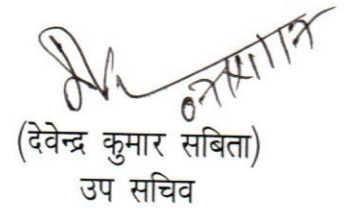 (देवेन्द्र कुमार सबिता)
उप सचिव